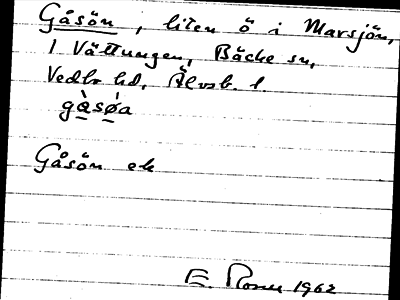 Gåsön, liten ö i Marsjön,
1 Vättungen, Bäcke sn,
Vedbo hd, Älvsb. l.
gå̀sǿa
Gåsön ek
E. Rosen 1962